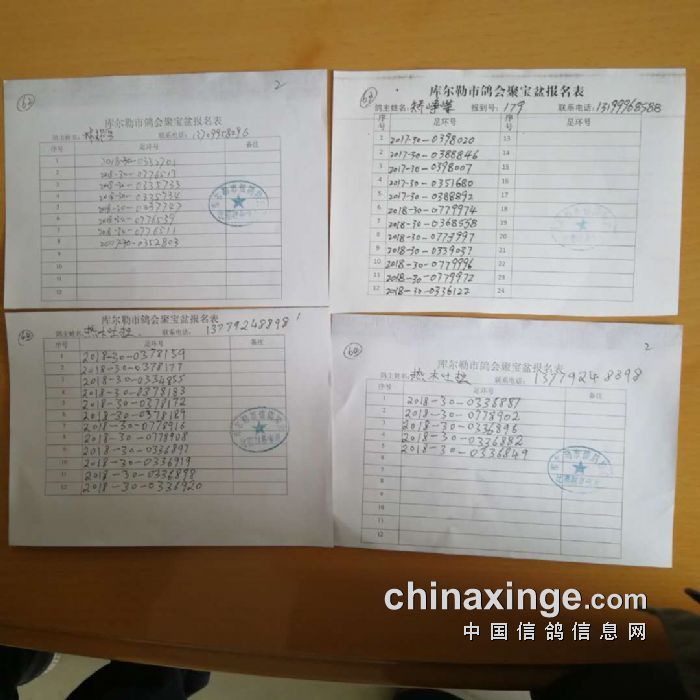 62
2
库尔勒市鸽会聚宝盆报名表
鸽主姓名:
联系电话:
序号
足环号
备注
1
2018-30-0332701
2
2018-30-0776517
3
2018-30-0335733
4
2018-30-0335734
5
6
2018-30-0776539
7
2018-30-0776511
8
2017-30-0352803
9
10
11
12
库尔勒市鸽会聚宝盆报名表
鸽主姓名:
报到号: 179
联系电话: 13199968588
序号
足环号
序号
足环号
1
2017-30-0398020
13
2
2017-30-0388846
14
3
2017-30-0398007
15
4
2017-30-0351680
16
5
2017-30-0388892
17
6
2018-30-0779974
18
7
2018-30-0368558
19
8
2018-30-0779997
20
9
2018-30-0339037
21
10
2018-30-0779996
22
11
2018-30-0779972
23
12
2018-30-0336122
24
60
1
库尔勒市鸽会聚宝盆报名表
鸽主姓名: 热木吐拉
联系电话: 13779248898
序号
足环号
备注
1
2018-30-0378159
2
2018-30-0378177
3
2018-30-0334855
4
2018-30-0378183
5
2018-30-0378172
6
2018-30-0378189
7
2018-30-0778916
8
2018-30-0778908
9
2018-30-0336897
10
2018-30-0336919
11
2018-30-0336898
12
2018-30-0336920
60
2
库尔勒市鸽会聚宝盆报名表
鸽主姓名: 热木吐拉
联系电话: 13779248898
序号
足环号
备注
1
2018-30-0336887
2
2018-30-0778902
3
2018-30-0336896
4
2018-30-0336882
5
2018-30-0336849
6
7
8
9
10
11
12
chinaxinge.com
中国信鸽信息网